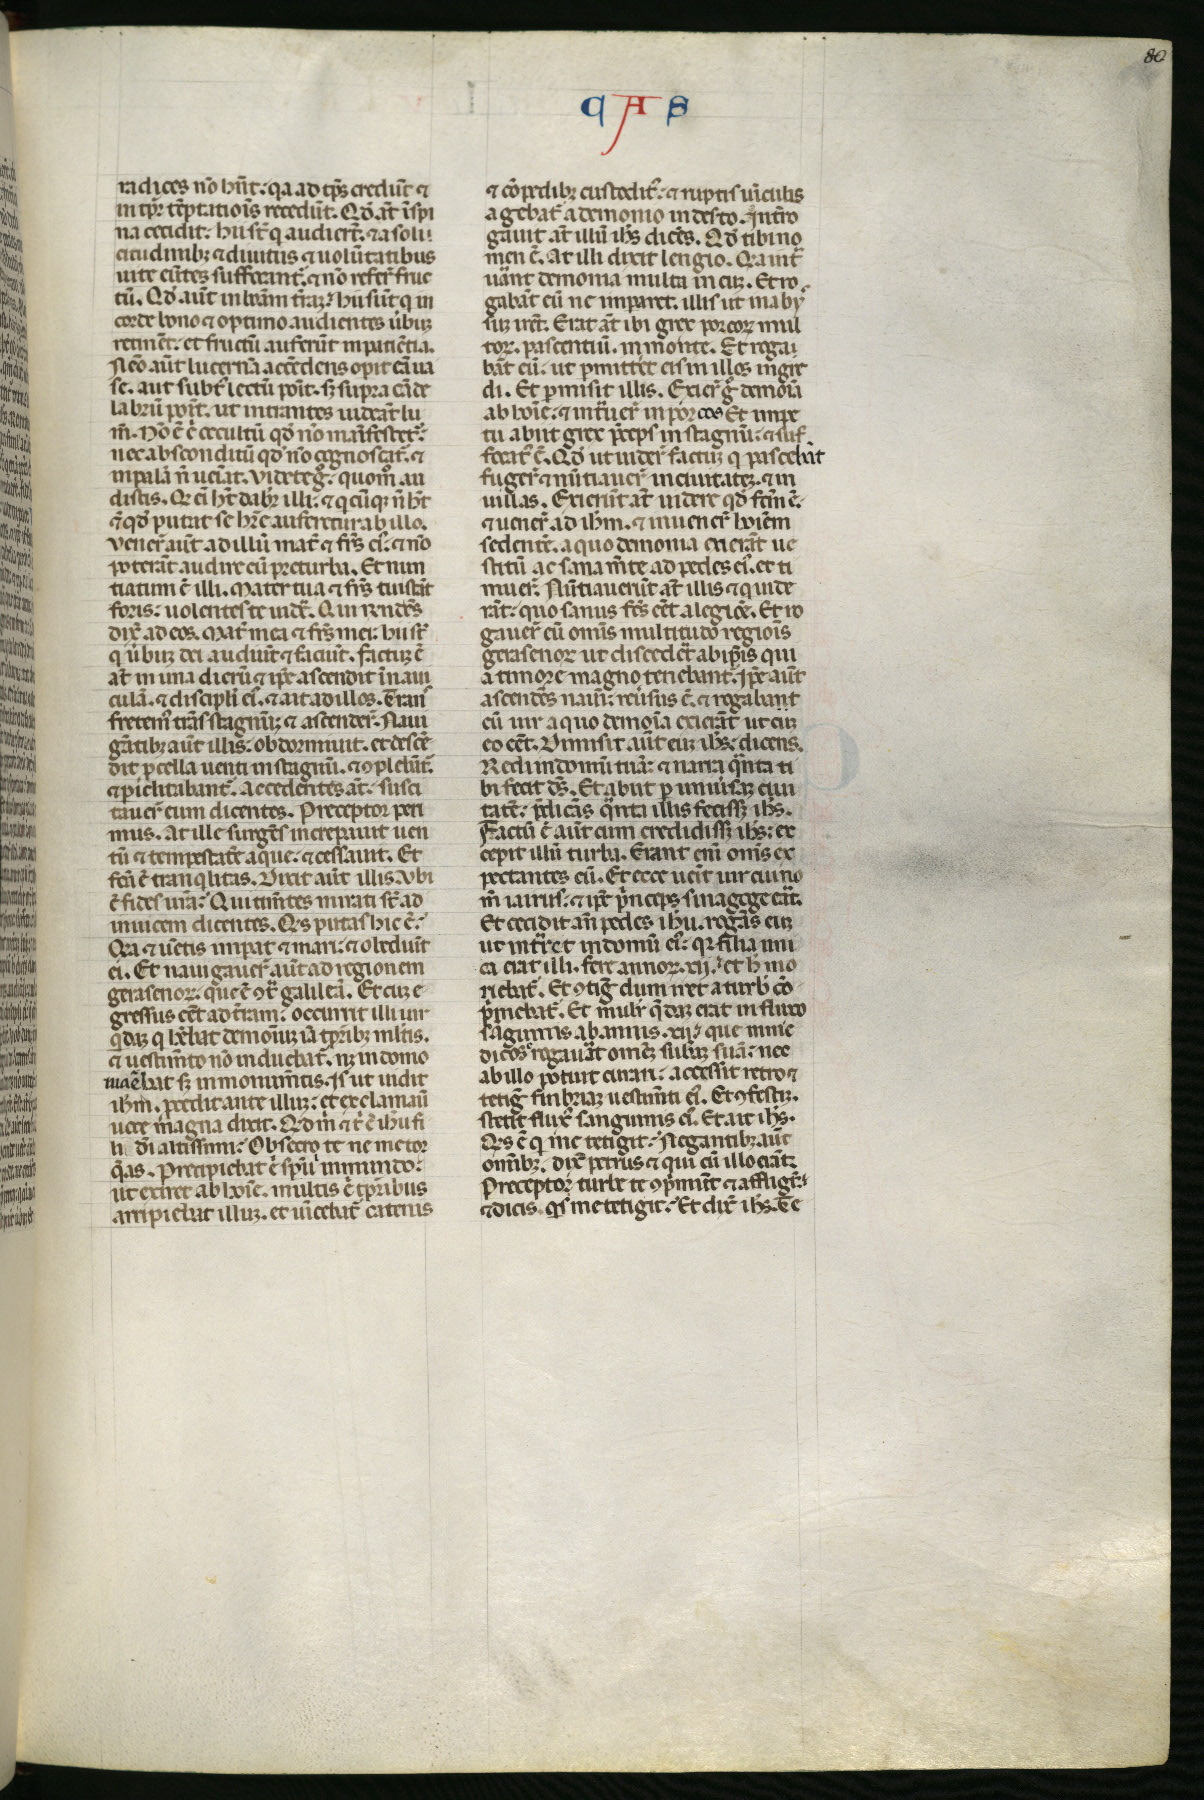 80
C A S
radices nō hn̄t: qa ad tp̄s credūt ⁊
in tp̄r tēptatiōis recedūt. Qd̄ at̄ ī spi
na cecidit: hii st̄ q audiert̄. ⁊ a soli
citudinibꝫ ⁊ diuitiis ⁊ uolūtatibus
uite eūtes suffocant̄. ⁊ nō refer̄t fruc
tū. Qd̄ aūt in bonā tr̄aꝫ: hii sūt q in
corde bono ⁊ optimo audientes ūbuꝫ
retinēt. et fructū auferūt in patiētia.
Nēo aūt lucernā accēdens opit eā ua
se. aut subt̄ lectū poīt. sꝫ supra cāde
labrū poīt. ut intrantes uideāt lu
m̄. Nō ē ē occultū qd̄ nō māifestet̄:
nec absconditū qd̄ nō cognoscat̄. ⁊
in palā n̄ ueniāt. Videte gͦ quom̄ au
ditis. Qi eī hꝫ dabit̄ illi: ⁊ q cūqꝫ n̄ hꝫ
⁊ qd̄ putat se hr̄e auferetur ab illo.
Vener̄ aūt ad illū mat̄ ⁊ fr̄s ei: ⁊ nō
poterāt audire eū pre turba. Et nun
tiatum ē illi. Mater tua ⁊ fr̄s tui stāt
foris: uolentes te uidē. Qui rn̄dēs
dix̄ ad eos. Mat̄ mea ⁊ fr̄s mei: hii st̄
q ūbuꝫ dei audiūt ⁊ faciūt. factuꝫ ē
at̄ in una dierū ⁊ ip̄e ascendit ī naui
culā. ⁊ discipli ei. ⁊ ait ad illos. Trans
fretemꝰ trās stagnūꝫ ⁊ ascender̄. Naui
gātibꝫ aūt illis: obdormiuit. et descē
dit pcella uenti in stagnū. ⁊ ꝯplebūt̄
⁊ piclitabant̄. accedentes at̄: susci
tauer̄ eum dicentes. Preceptor peri
mus. At ille surgēs increpauit uen
tū ⁊ tempestatē aque: ⁊ cessauit. Et
fcā ē tranqlitas. Dixit aūt illis. Vbi
ē fides ur̄a: Qui timētes mirati st̄ ad
inuicem dicentes. Qis putas hic ē:
Qia ⁊ uētis impat ⁊ mari: ⁊ obediūt
ei. Et nauigauer̄ aūt ad regionem
gerasenoꝝ. que ē ꝯt̄ galileā. Et cuꝫ e
gressus eēt ad tr̄am: occurrit illi uir
qdaꝫ q hēbat demoniuꝫ iā tp̄ribꝫ mltis.
⁊ uestim̄to nō induebat̄. nꝫ in domo
manēbat sꝫ in monum̄tis. Is ut uidit
ihm̄. pcedit ante illuꝫ: et exclamauī
uoce magna dixit. Qd m̄ ⁊ t̄ ē ihū fi
li dī altissimi: Obsecro te ne me tor
qas. Precipiebat ē spū inmundo:
ut exiret ab hoīe. multis ē tp̄ribus
arripiebat illuꝫ. et uīcebat̄ catenis
⁊ cōpedibꝫ custodit̄: ⁊ ruptis uīculis
agebat̄ a demonio in desto. Intro
gauit at̄ illū ihs̄ dicēs. Qd̄ tibi no
men ē. At illi dixit legio. Qia int̄
uāt demonia multa in eūꝫ. Et ro
gabāt eū ne imparet. illis ut in aby
suꝫ irēt. Erat at̄ ibi grex porcoꝝ mul
toꝝ. pascentiū. in mōnte. Et roga
bāt eū: ut pmittet eis in illos ingre
di. Et pmisit illis. Exier̄ gͦ demōia
ab hoīe: ⁊ int̄uer̄ in porcos Et impe
tu abiit grex pceps in stagnū: ⁊ suf
focat̄ ē. Qd̄ ut uider̄ factuꝫ q pascebāt
fuger̄ ⁊ nūtiauer̄ in ciuitateꝫ. ⁊ in
uillas. Exierūt at̄ uidere qd̄ fcm̄ ē:
⁊ uener̄ ad ihm̄. ⁊ inuener̄ hoīem
sedentē. a quo demonia exierāt ue
stitū ac sana m̄te ad pedes ei. et ti
muer̄. Nūtiauerūt at̄ illis ⁊ qui uide
rāt: quo sanus fcs̄ eēt a legiōe. Et ro
gauer̄ eū omīs multitudo regiōis
gerasenoꝝ ut discedet̄ ab ipīs qui
a timore magno tenebant̄. Ip̄e aūt
ascendēs nauī: reūsus ē. ⁊ rogabant
eū uir a quo demōia exierāt ut cuꝫ
eo eēt. Dimisit aūt euꝫ ihs̄: dicens.
Redi in domū tuā: ⁊ narra qnta ti
bi fecit ds̄. Et abiit p uniūsaꝫ ciui
tatē. pdicās qnta illis fecissꝫ ihs̄.
Factū ē aūt cum credidissꝫ ihs̄: ex
cepit illū turba. Erant eni omīs ex
pectantes eū. Et ecce ueīt uir cui no
m̄ iairus: ⁊ ipe pnceps sinagoge eāt.
Et cecidit an̄ pedes ihū. rogās euꝫ
ut int̄ret in domū ei: qꝛ filia uni
ca erat illi. fere annoꝝ .xii. et h̄ mo
riebat̄. Et ꝯtigͭ dum iret a turb̄ cō
pmebat̄. Et mulir̄ qdaꝫ erat in fluxo
saguinis ab annis .xii. que in me
dicos erogauāt omēꝫ sub̄aꝫ suā: nec
ab illo potuit curari: accessit retro ⁊
tetigͭ finbriaꝫ uestim̄ti ei. Et ꝯfestiꝫ.
stetit fluxꝰ sanguinis ei. Et ait ihs̄.
Qis ē q me tetigit: Negantibꝫ aūt
omībꝫ. dix̄ petrus ⁊ qui cū illo erāt:
Preceptor turbe te ꝯpmūt ⁊ affligūt:
⁊ dicis. qis me tetigit: Et dix̄ ihs̄. Te